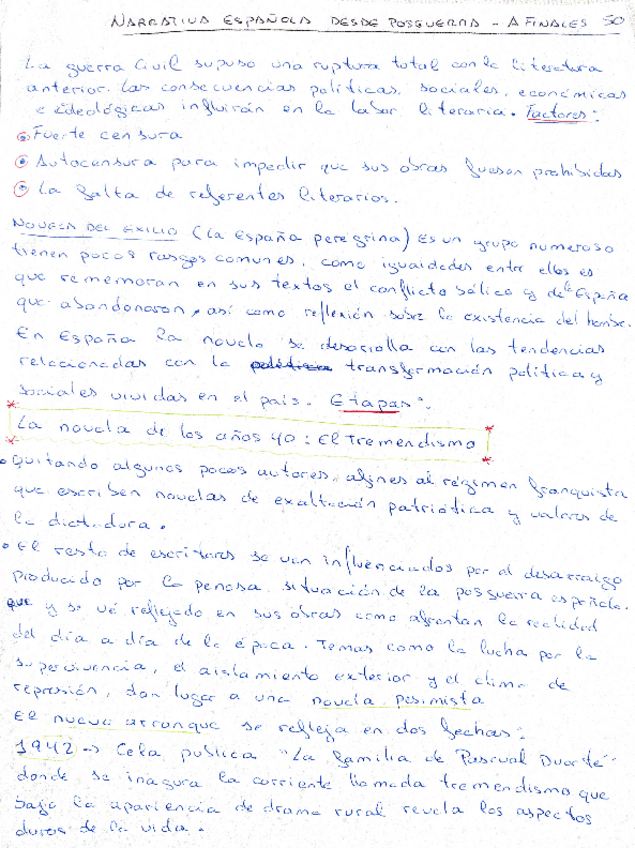 NARRATIVA ESPAÑOLA DESDE POSGUERRA - A FINALES 50
La guerra Civil supuso una ruptura total con la literatura
anterior. Las consecuencias políticas, sociales, económicas
e ideológicas influirán en la labor literaria. Factores:
Fuerte censura
Autocensura para impedir que sus obras fuesen prohibidas
La falta de referentes literarios.
NOVELA DEL EXILIO (La España peregrina) Es un grupo numeroso
tienen pocos rasgos comunes, como igualdades entre ellos es
que rememoran en sus textos el conflicto bélico y de la España
que abandonaron, así como reflexión sobre la existencia del hombre.
En España la novela se desarolla con las tendencias
relacionadas con la política transformación política y
sociales vividas en el país. Etapas:
La novela de los años 40: El Tremendismo
Quitando algunos pocos autores, afines al régimen franquista
que escriben novelas de exaltación patriótica y valores de
la dictadura.
El resto de escritores se ven influenciados por el desarraigo
producido por la penosa situación de la posguerra española.
que y se vé reflejado en sus obras como afrontan la realidad
del día a día de la época. Temas como la lucha por la
supervivencia, el aislamiento exterior y el clima de
represión, dan lugar a una novela pesimista
El nuevo arranque se refleja en dos fechas:
1942 -> Cela publica "La familia de Pascual Duarte"
donde se inagura la corriente llamada tremendismo que
bajo la apariencia de drama rural revela los aspectos
duros de la vida.